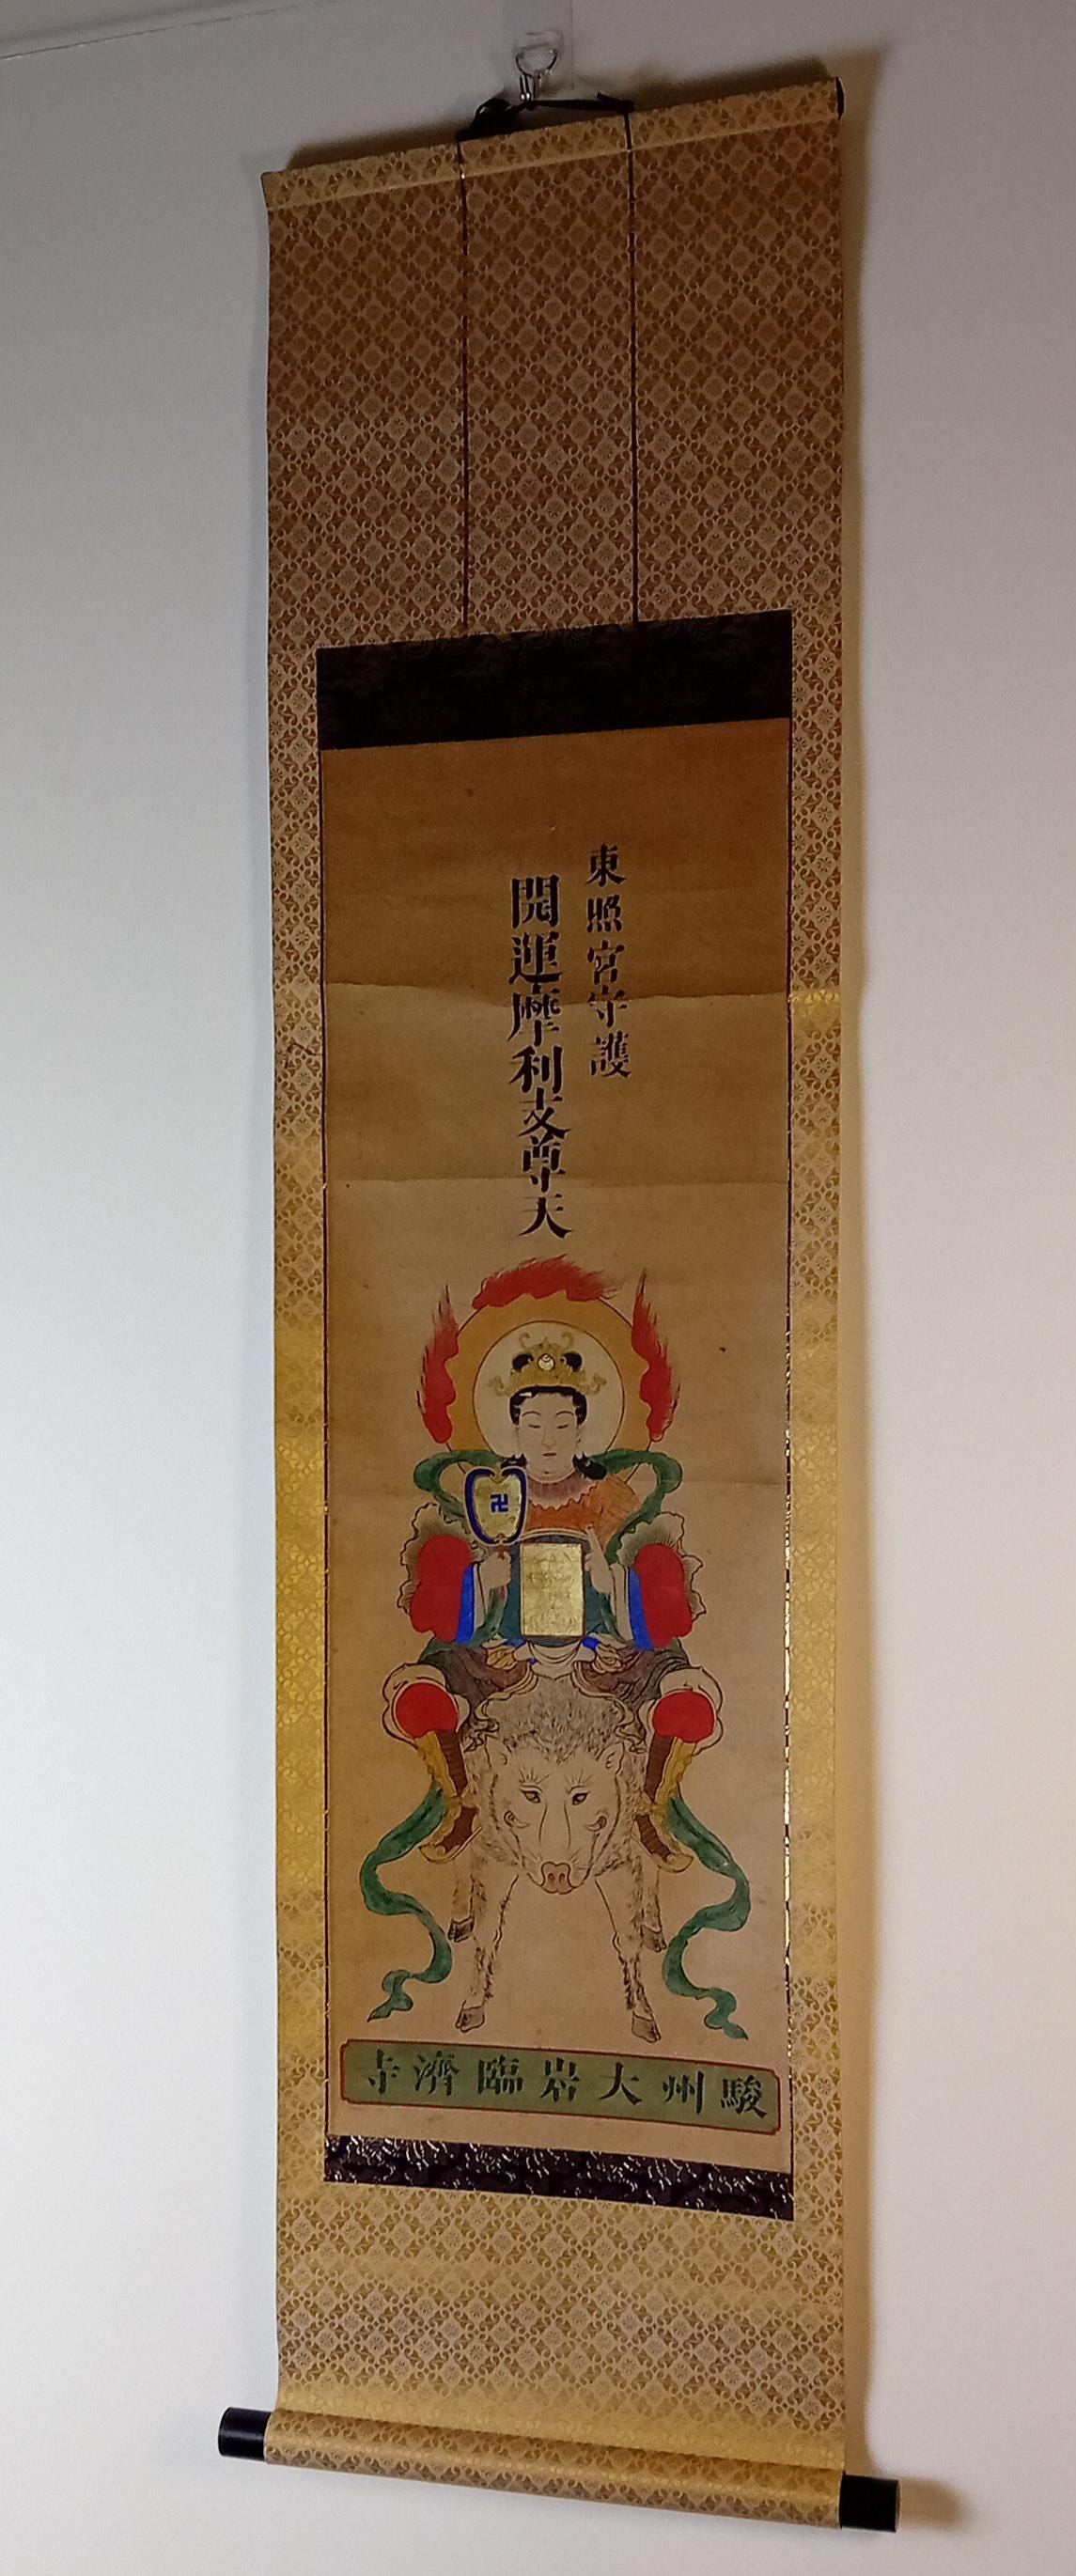 東照宮守護
開運摩利支尊天
卍
駿州大岩臨濟寺